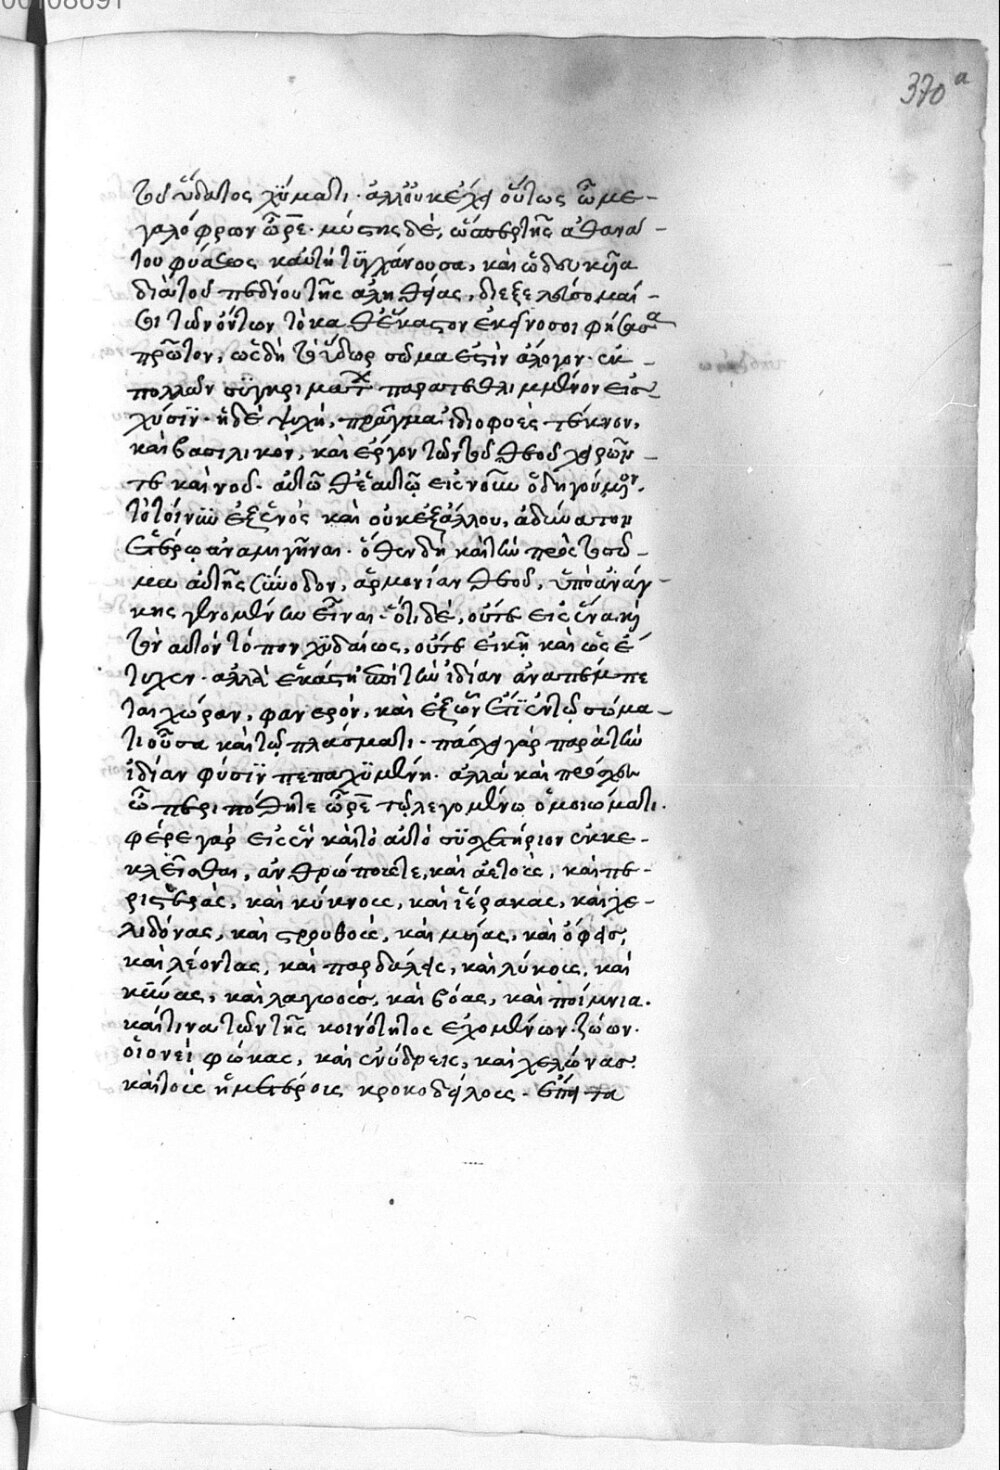 00108691
370 a
τοῦ ὕδατος χύματι· ἀλλ' οὐκ ἔχει οὕτως ὦ με-
γαλόφρων ὧρε· μύστης δέ, ὥσπερ τῆς ἀθανά-
του φύσεως καὐτὴ τυγχάνουσα, καὶ ὡδευκυῖα
διὰ τοῦ πεδίου τῆς ἀληθείας, διεξελεύσομαί
τι τῶν ὄντων τὸ καθέκαστον ἐκεῖνό σοι φήσασα
πρῶτον, ὡς δὴ τὸ ὕδωρ σῶμά ἐστιν ἄλογον· ἐκ
πολλῶν συγκριμάτων παρατεθλιμμένον εἰς
χύσιν· ἡ δὲ ψυχή, πρᾶγμα ἰδιοφυὲς τέκνον,
καὶ βασιλικόν, καὶ ἔργον τῶν τοῦ θεοῦ χειρῶν
τε καὶ νοῦ· αὐτῶ θ' ἑαυτῶ εἰς νοῦν ὁδηγούμενον·
τὸ τοίνυν ἐξ ἑνὸς καὶ οὐκ ἐξ ἄλλου, ἀδύνατον
ἑτέρῳ ἀναμιγῆναι· ὅθεν δὴ καὶ τὴν πρὸς τὸ σῶ-
μα αὐτῆς σύνοδον, ἁρμονίαν θεοῦ, ὑπὸ ἀνάγ-
κης γενομένην εἶναι· ὅτι δέ, οὔτε εἰς ἕνα καὶ
τὸν αὐτὸν τόπον χυδαίως, οὔτε εἰκῆ καὶ ὡς ἔ-
τυχεν· ἀλλὰ ἑκάστη ἐπὶ τὴν ἰδίαν ἀναπέμπε
ται χώραν, φανερόν, καὶ ἐξ ὧν ἔτι ἐν τῷ σώμα-
τι οὖσα καὶ τῷ πλάσματι· πάσχει γὰρ παρὰ τὴν
ἰδίαν φύσιν πεπαχυμένη· ἀλλὰ καὶ πρόσχες
ὦ περιπόθητε ὧρε τῷ λεγομένῳ ὁμοιώματι·
φέρε γὰρ εἰς ἓν καὶ τὸ αὐτὸ συσχετήριον ἐκκε-
κλεῖσθαι, ἀνθρώπους τε, καὶ ἀετοὺς, καὶ πε-
ριστερὰς, καὶ κύκνους, καὶ ἱέρακας, καὶ χε-
λιδόνας, καὶ στρουθοὺς, καὶ μυίας, καὶ ὄφεις,
καὶ λέοντας, καὶ παρδάλεις, καὶ λύκους, καὶ
κύνας, καὶ λαγωοὺς, καὶ βόας, καὶ ποίμνια·
καί τινα τῶν τῆς κοινότητος ἐχομένων ζώων·
οἱονεὶ φώκας, καὶ ἐνύδρεις, καὶ χελώνας·
καὶ τοὺς ἡμετέρους κροκοδείλους· ἔπειτα